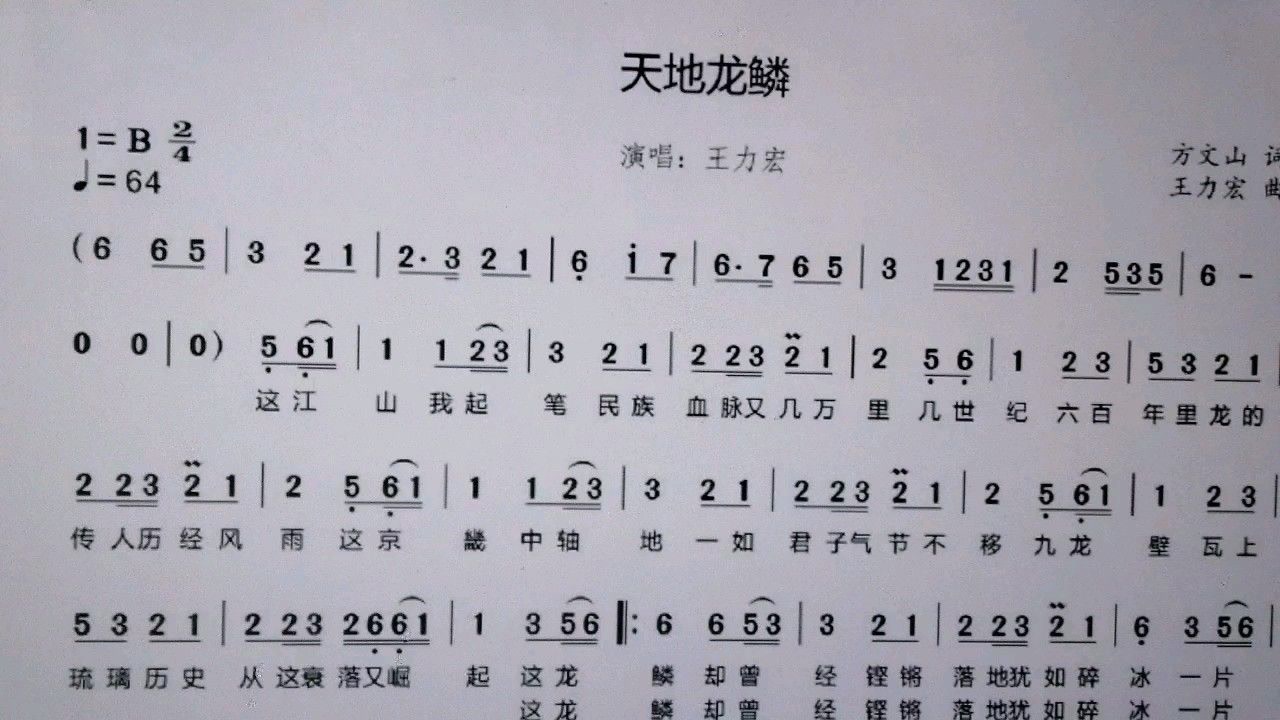 天地龙鳞
1=B 2/4
演唱：王力宏
方文山 词
♩=64
王力宏 曲
(6 6 5 | 3 2 1 | 2· 3 2 1 | 6 i 7 | 6· 7 6 5 | 3 1 2 3 1 | 2 5 3 5 | 6 -
0 0 | 0) 5 6 1 | 1 1 2 3 | 3 2 1 | 2 2 3 2 1 | 2 5 6 | 1 2 3 | 5 3 2 1 |
这江 山 我起 笔 民族 血脉又几万 里 几世 纪 六百 年里龙的
2 2 3 2 1 | 2 5 6 1 | 1 1 2 3 | 3 2 1 | 2 2 3 2 1 | 2 5 6 1 | 1 2 3 |
传人历经风 雨 这京 畿 中轴 地 一如 君子气节不 移 九龙 壁 瓦上
5 3 2 1 | 2 2 3 2 6 6 1 | 1 3 5 6 ‖: 6 6 5 3 | 3 2 1 | 2 2 3 2 1 | 6 3 5 6 |
琉璃历史 从这衰落又崛 起 这龙 鳞 却曾 经 铿锵 落地犹如碎 冰 一片
这龙 鳞 却曾 经 铿锵 落地犹如碎 冰 一片